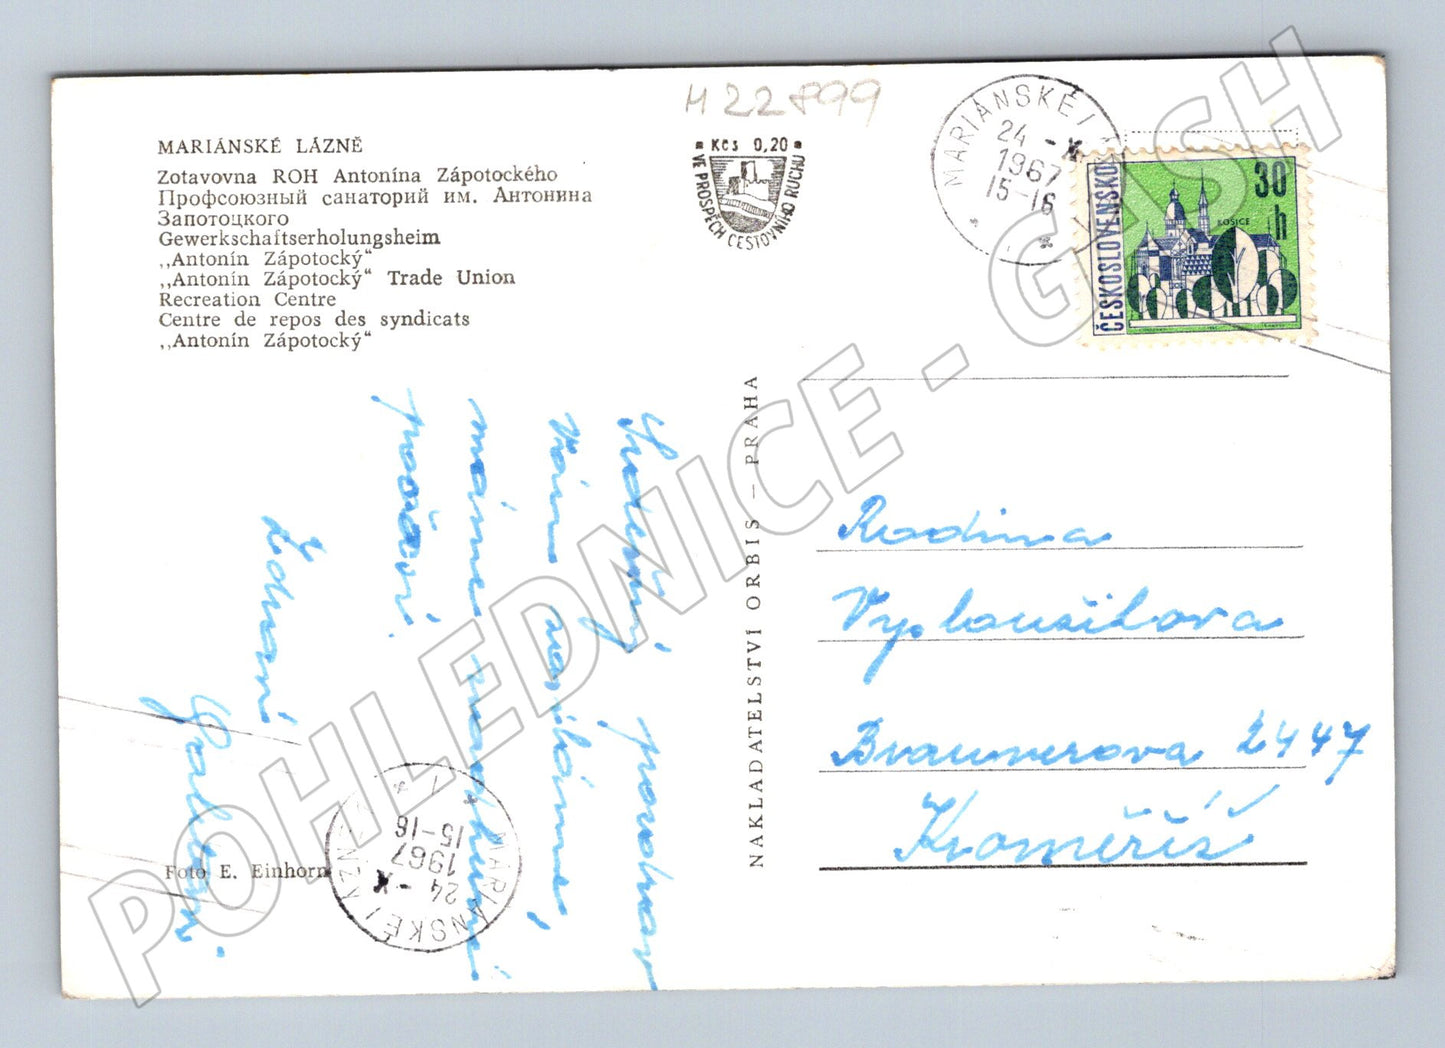 H 22899
MARIÁNSKÉ LÁZNĚ
Zotavovna ROH Antonína Zápotockého
Профсоюзный санаторий им. Антонина
Запотоцкого
Gewerkschaftserholungsheim
„Antonín Zápotocký“
„Antonín Zápotocký“ Trade Union
Recreation Centre
Centre de repos des syndicats
„Antonín Zápotocký“
Kčs 0,20
VE PROSPĚCH CESTOVNÍHO RUCHU
MARIÁNSKÉ LÁZNĚ
24 -X
1967
15-16
ČESKOSLOVENSKO
30 h
KOŠICE
Srdečný pozdrav
Vám
máme
počasí.
Foto E. Einhorn
MARIÁNSKÉ LÁZNĚ
24 -X
1967
15-16
NAKLADATELSTVÍ ORBIS – PRAHA
Rodina
Vyploužilova
Braunerova 2447
Kroměříž
POHLEDNICE - GASH